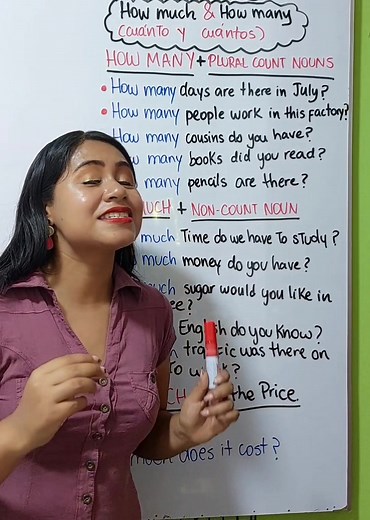 How much & How many
(cuánto y cuántos)
HOW MANY + PLURAL COUNT NOUNS
• How many days are there in July?
• How many people work in this factory?
How many cousins do you have?
many books did you read?
many pencils are there?
MUCH + NON-COUNT NOUN
much Time do we have To study?
much money do you have?
much sugar would you like in
ee?
English do you know?
traffic was there on
To w k?
the Price.
much does it cost?